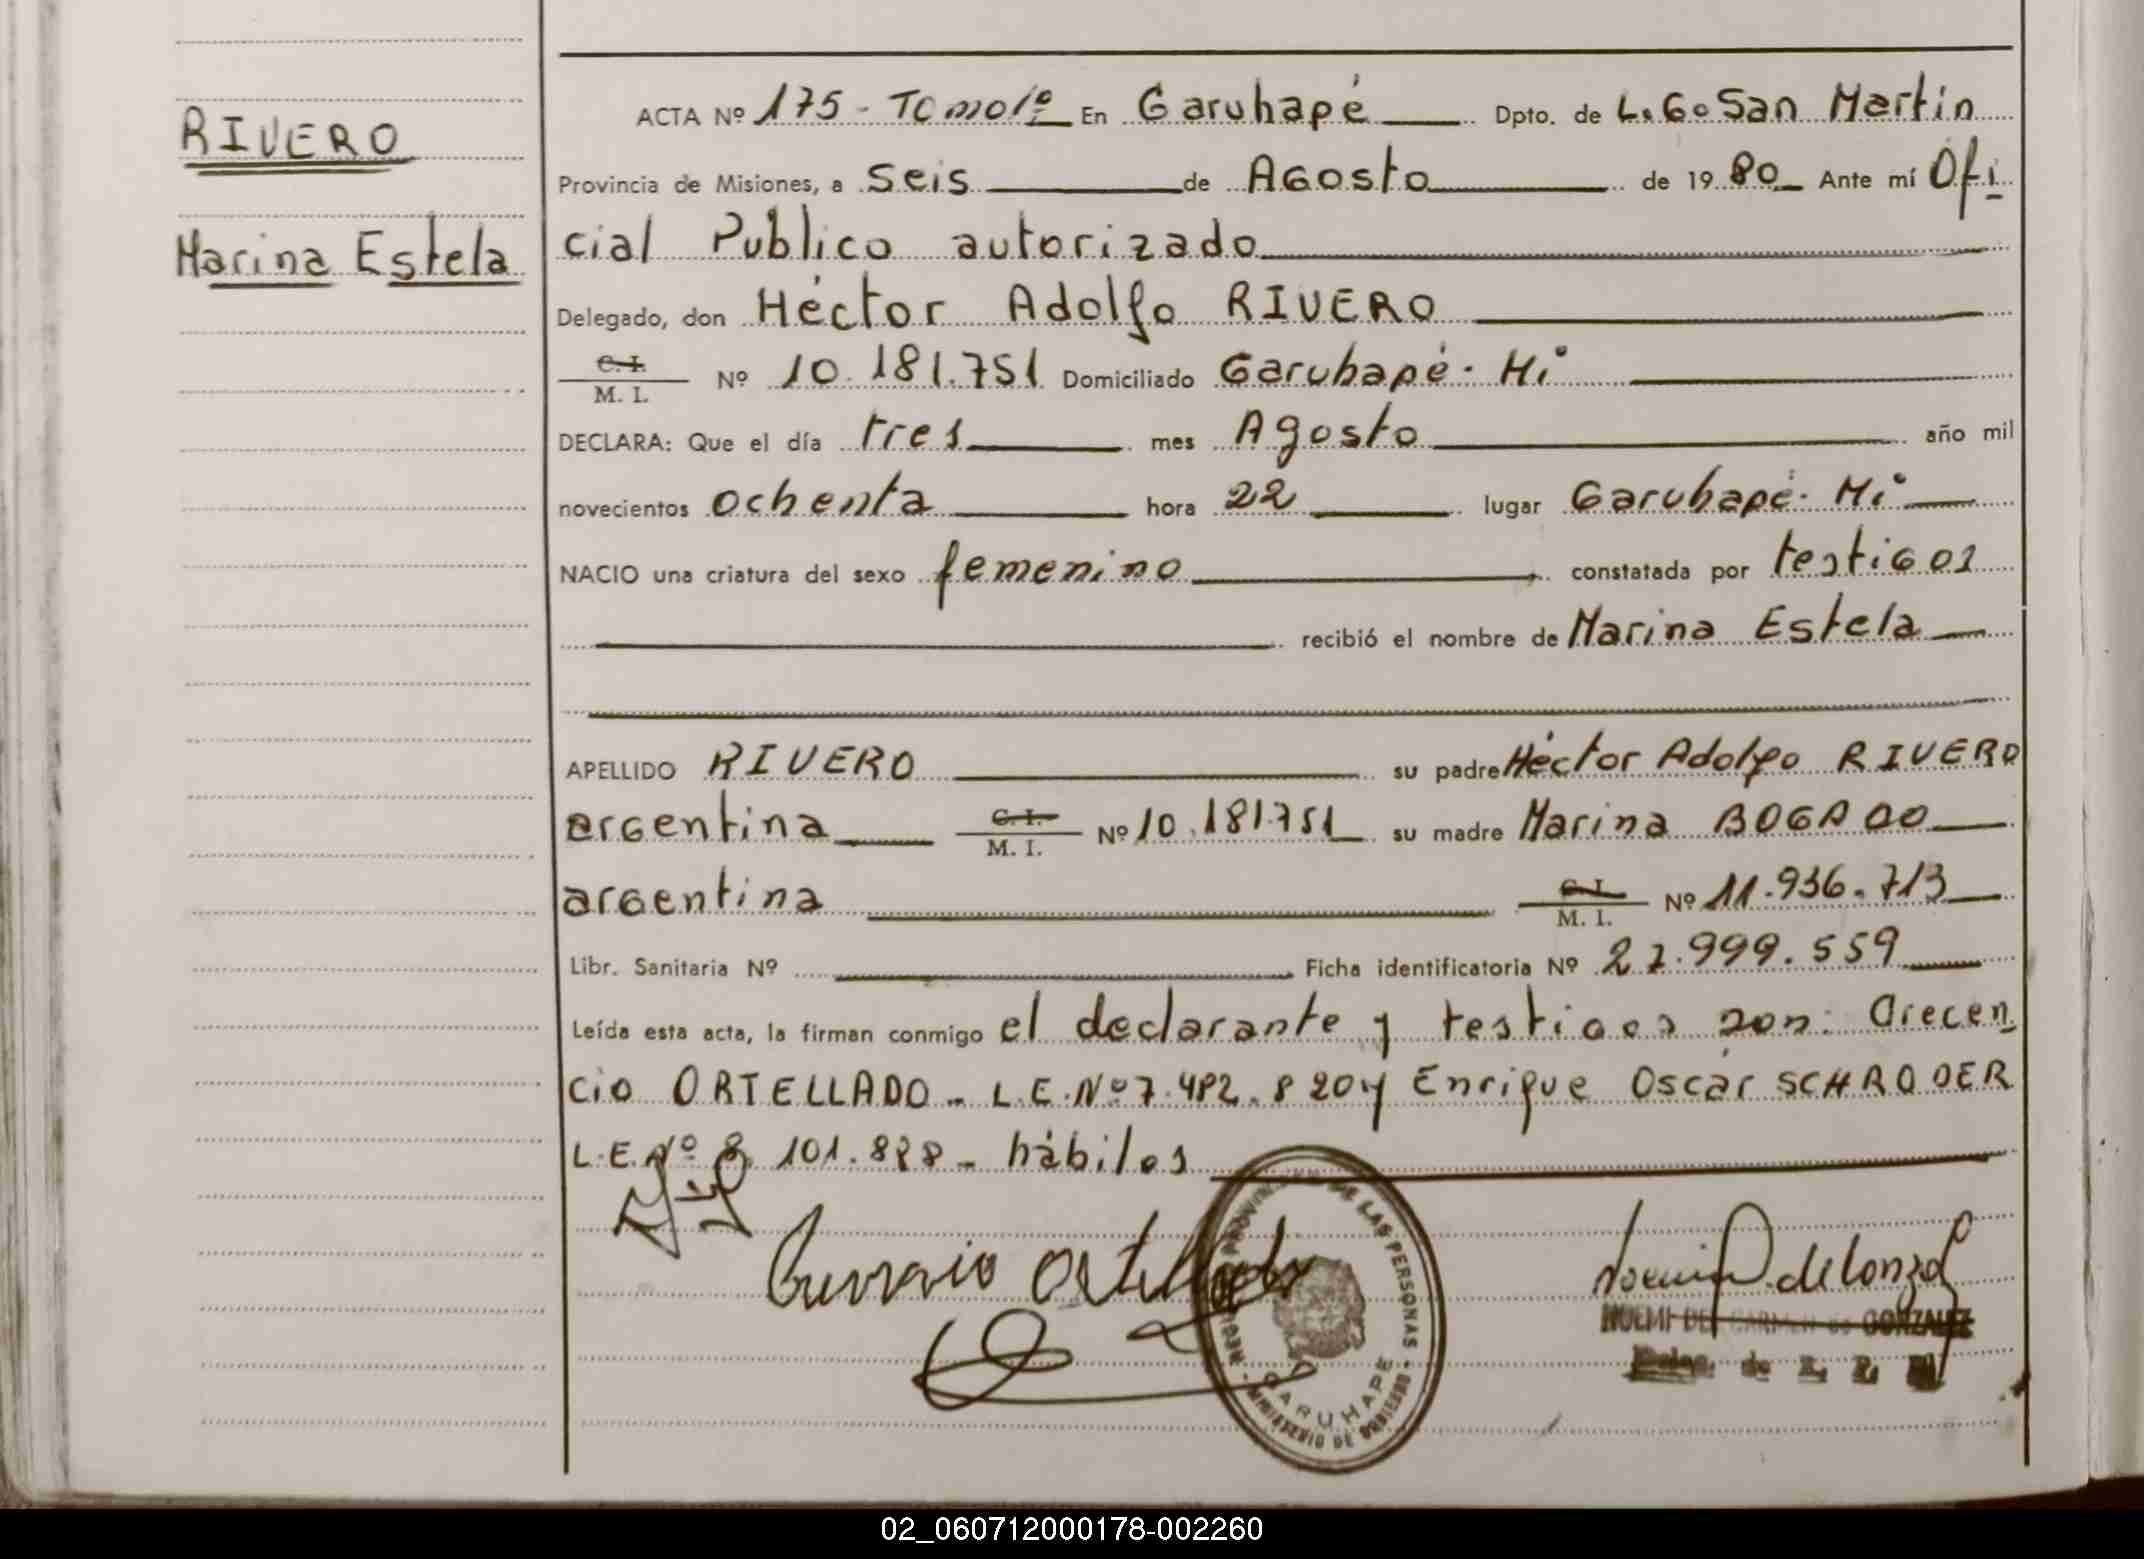 RIVERO
Marina Estela
ACTA Nº 175 - Tomo 1º En Garuhapé Dpto. de L. G. San Martin
Provincia de Misiones, a seis de Agosto de 1980 Ante mí Ofi
cial Publico autorizado
Delegado, don Héctor Adolfo RIVERO
C. I.
M. I. Nº 10.181.751 Domiciliado Garuhapé - Mi
DECLARA: Que el día tres mes Agosto año mil
novecientos ochenta hora 22 lugar Garuhapé - Mi
NACIO una criatura del sexo femenino constatada por testigos
recibió el nombre de Marina Estela
APELLIDO RIVERO su padre Héctor Adolfo RIVERO
argentina C. I. M. I. Nº 10.181.751 su madre Marina BOGADO
argentina C. I. M. I. Nº 11.936.713
Libr. Sanitaria Nº Ficha identificatoria Nº 27.999.559
Leída esta acta, la firman conmigo el declarante y testigos son: Crecen
cio ORTELLADO - L.E. Nº 7.482.820 y Enrique Oscár SCHRODER
L.E. Nº 8.101.828 - hábiles
NOEMI DEL CARMEN de GONZALEZ
Deleg. de R. P.
REGISTRO PROVINCIAL DE LAS PERSONAS
GARUHAPE
MINISTERIO DE GOBIERNO
02_060712000178-002260